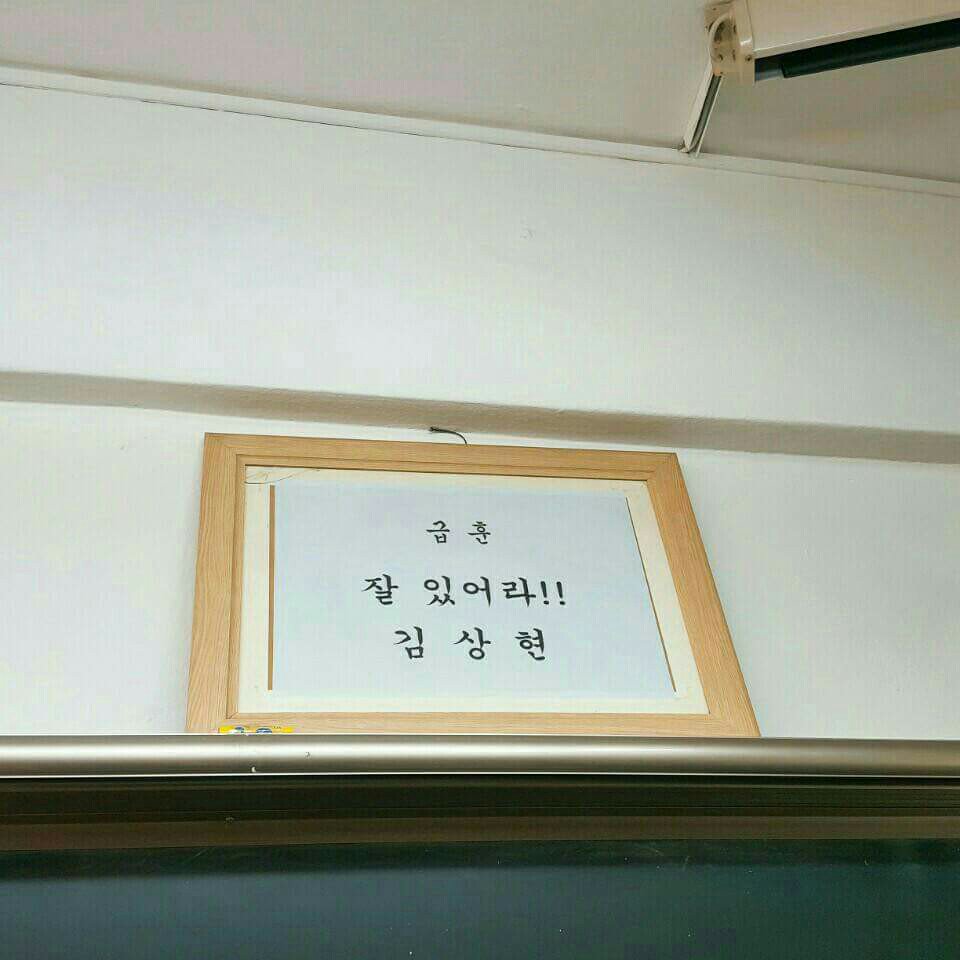 급 훈
잘 있어라!!
김 상 현